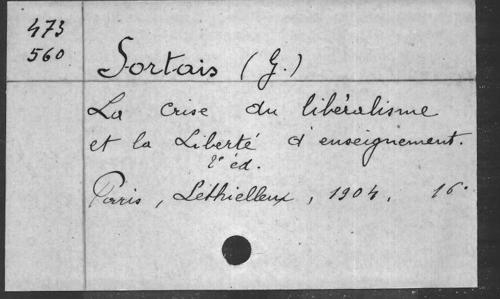 473
560
Sortais (G.)
La crise du libéralisme
et la Liberté d'enseignement.
2e éd.
Paris, Lethielleux, 1904. 16°